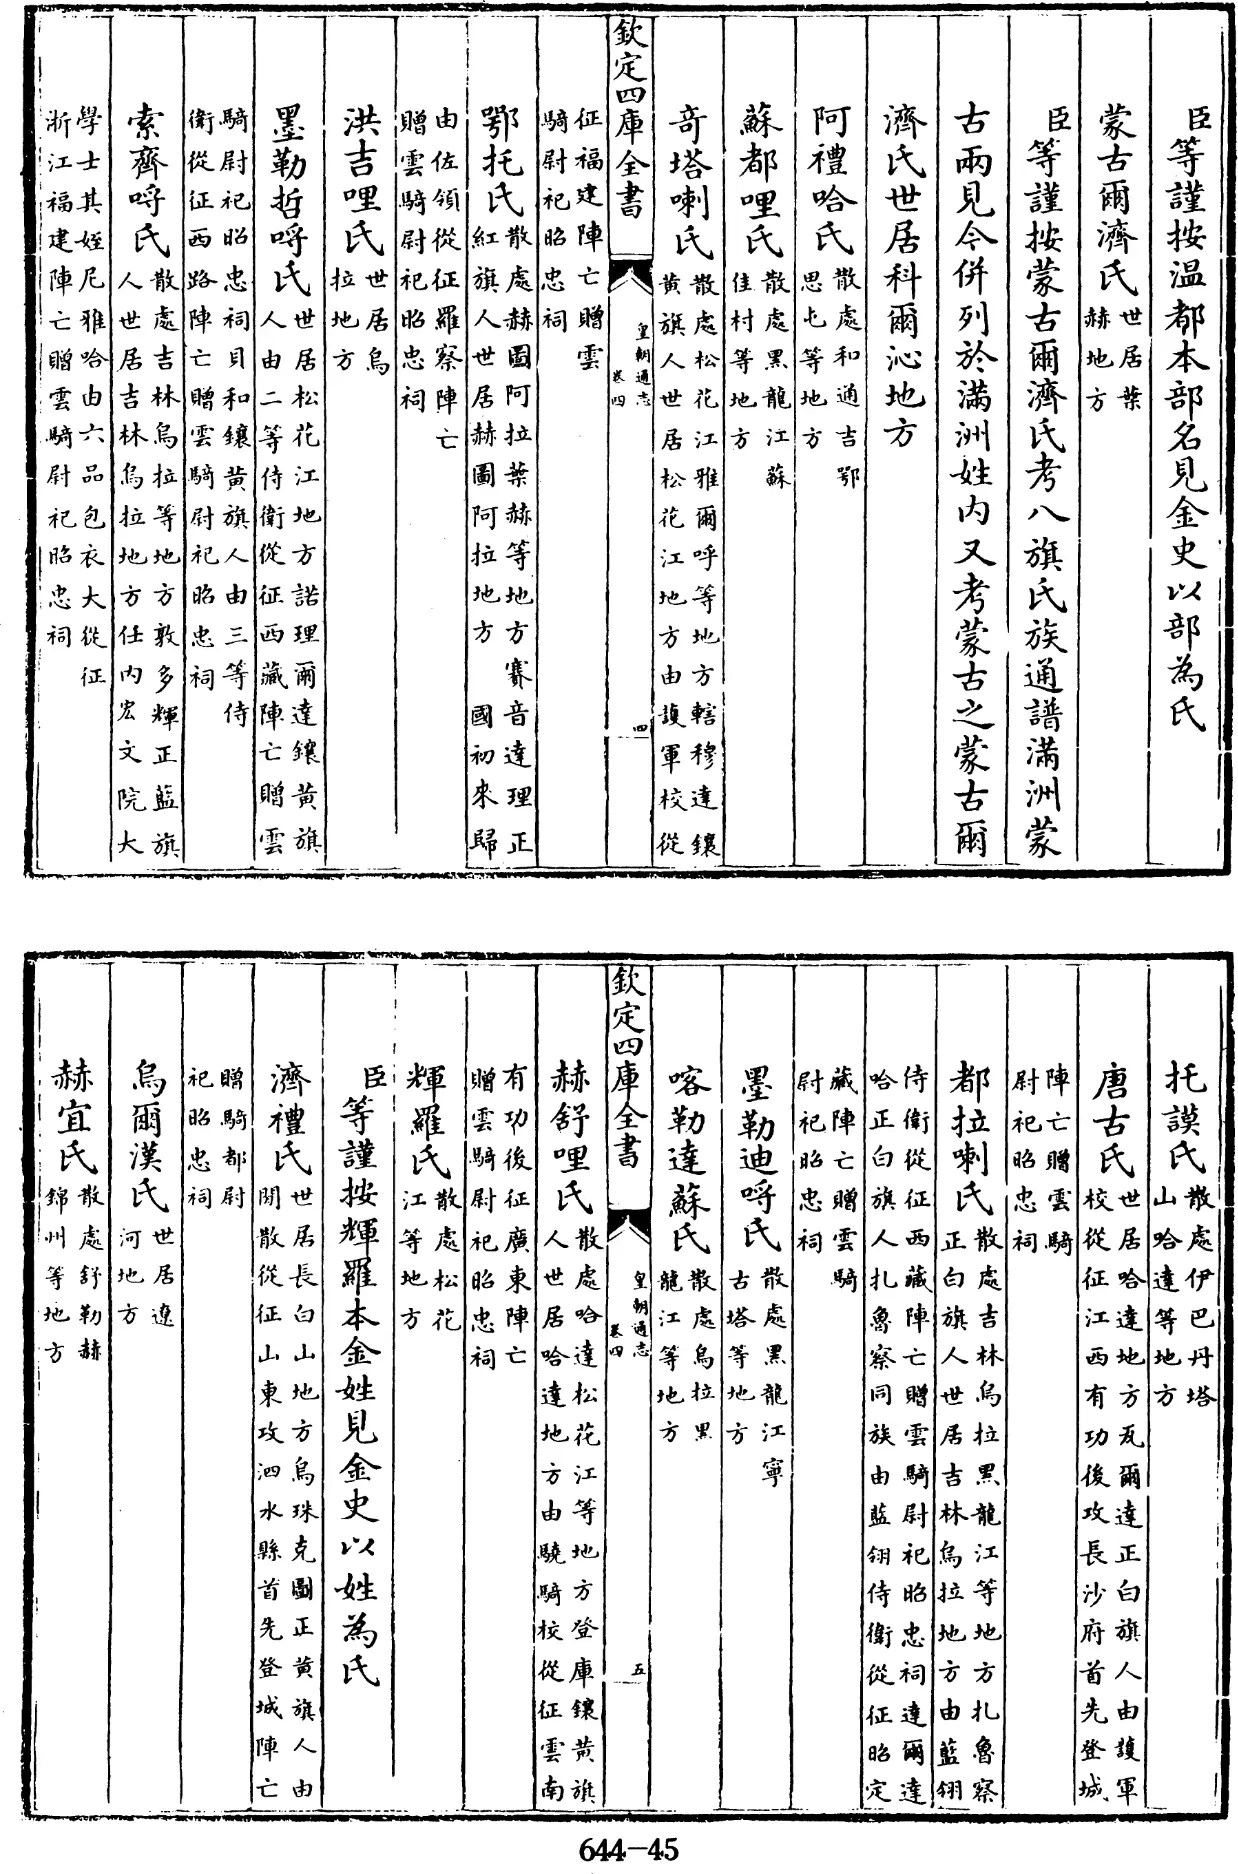 臣等謹按溫都本部名見金史以部為氏
蒙古爾濟氏世居葉赫地方
臣等謹按蒙古爾濟氏考八旗氏族通譜滿洲蒙
古兩見今併列於滿洲姓内又考蒙古之蒙古爾
濟氏世居科爾沁地方
阿禮哈氏散處和通吉鄂思屯等地方
蘇都哩氏散處黑龍江蘇佳村等地方
奇塔喇氏散處松花江雅爾呼等地方轄穆達鑲黃旗人世居松花江地方由護軍校從
欽定四庫全書 皇朝通志 卷四 四
征福建陣亡贈雲騎尉祀昭忠祠
鄂托氏散處赫圖阿拉葉赫等地方賽音達理正紅旗人世居赫圖阿拉地方 國初來歸
由佐領從征羅察陣亡贈雲騎尉祀昭忠祠
洪吉哩氏世居烏拉地方
墨勒哲哷氏世居松花江地方諾理爾達鑲黃旗人由二等侍衛從征西藏陣亡贈雲
騎尉祀昭忠祠貝和鑲黃旗人由三等侍衛從征西路陣亡贈雲騎尉祀昭忠祠
索齊哷氏散處吉林烏拉等地方敦多輝正藍旗人世居吉林烏拉地方任内宏文院大
學士其姪尼雅哈由六品包衣大從征浙江福建陣亡贈雲騎尉祀昭忠祠
托謨氏散處伊巴丹塔山哈達等地方
唐古氏世居哈達地方瓦爾達正白旗人由護軍校從征江西有功後攻長沙府首先登城
陣亡贈雲騎尉祀昭忠祠
都拉喇氏散處吉林烏拉黑龍江等地方扎魯察正白旗人世居吉林烏拉地方由藍翎
侍衛從征西藏陣亡贈雲騎尉祀昭忠祠達爾達哈正白旗人扎魯察同族由藍翎侍衛從征昭定
藏陣亡贈雲騎尉祀昭忠祠
墨勒迪哷氏散處黑龍江寧古塔等地方
喀勒達蘇氏散處烏拉黑龍江等地方
欽定四庫全書 皇朝通志 卷四 五
赫舒哩氏散處哈達松花江等地方登庫鑲黃旗人世居哈達地方由驍騎校從征雲南
有功後征廣東陣亡贈雲騎尉祀昭忠祠
輝羅氏散處松花江等地方
臣等謹按輝羅本金姓見金史以姓為氏
濟禮氏世居長白山地方烏珠克圖正黃旗人由閒散從征山東攻泗水縣首先登城陣亡
贈騎都尉祀昭忠祠
烏爾漢氏世居遼河地方
赫宜氏散處舒勒赫錦州等地方
644-45